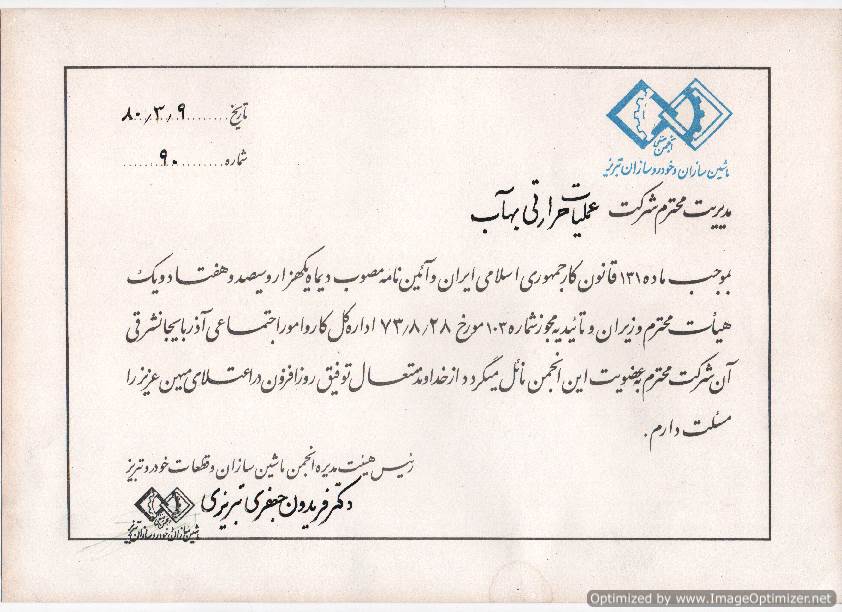 تاریخ ........ ۸۰/۳/۹
شماره ........ ۹۰ ........
انجمن صنفی
ماشین سازان و خودرو سازان تبریز
مدیریت محترم شرکت عملیات حرارتی بهآب
بموجب ماده ۱۳۱ قانون کار جمهوری اسلامی ایران و آئین نامه مصوب دیماه یکهزار و سیصد و هفتاد و یک
هیأت محترم وزیران و تأئیدیه مجوز شماره ۱۰۳ مورخ ۷۳/۸/۲۸ اداره کل کار و امور اجتماعی آذربایجانشرقی
آن شرکت محترم به عضویت این انجمن نائل میگردد از خداوند متعال توفیق روز افزون در اعتلای میهن عزیز را
مسئلت دارم .
رئیس هیئت مدیره انجمن ماشین سازان و قطعات خودرو تبریز
دکتر فریدون جعفری تبریزی
ماشین سازان و خودرو سازان تبریز
Optimized by www.ImageOptimizer.net